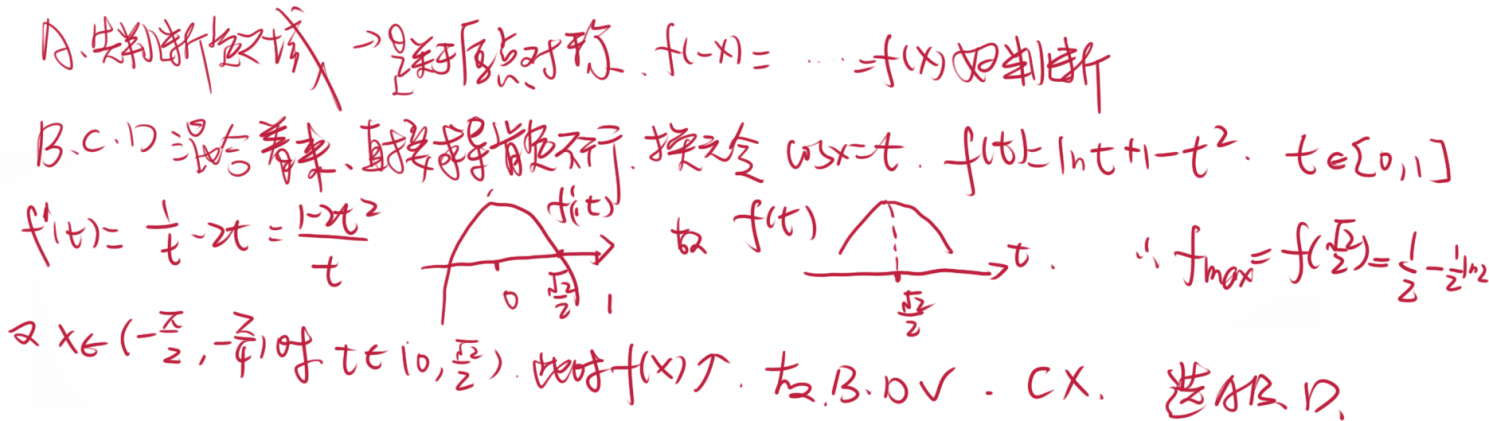 A、先判断定义域 → 是关于原点对称、f(-x)= …… =f(x) 好判断
B、C、D 混合着来、直接求导肯定不行、换元令 cosx=t. f(t)=lnt+1-t². t∈[0,1]
f'(t)= 1/t -2t = (1-2t²)/t f'(t) 0 √2/2 1 故 f(t) √2/2 t. ∴ fmax= f(√2/2)= 1/2 - 1/2 ln2
又 x∈(-π/2, -π/4)时 t∈(0, √2/2). 此时f(x)↗. 故.B.D√. C×. 选AB、D、